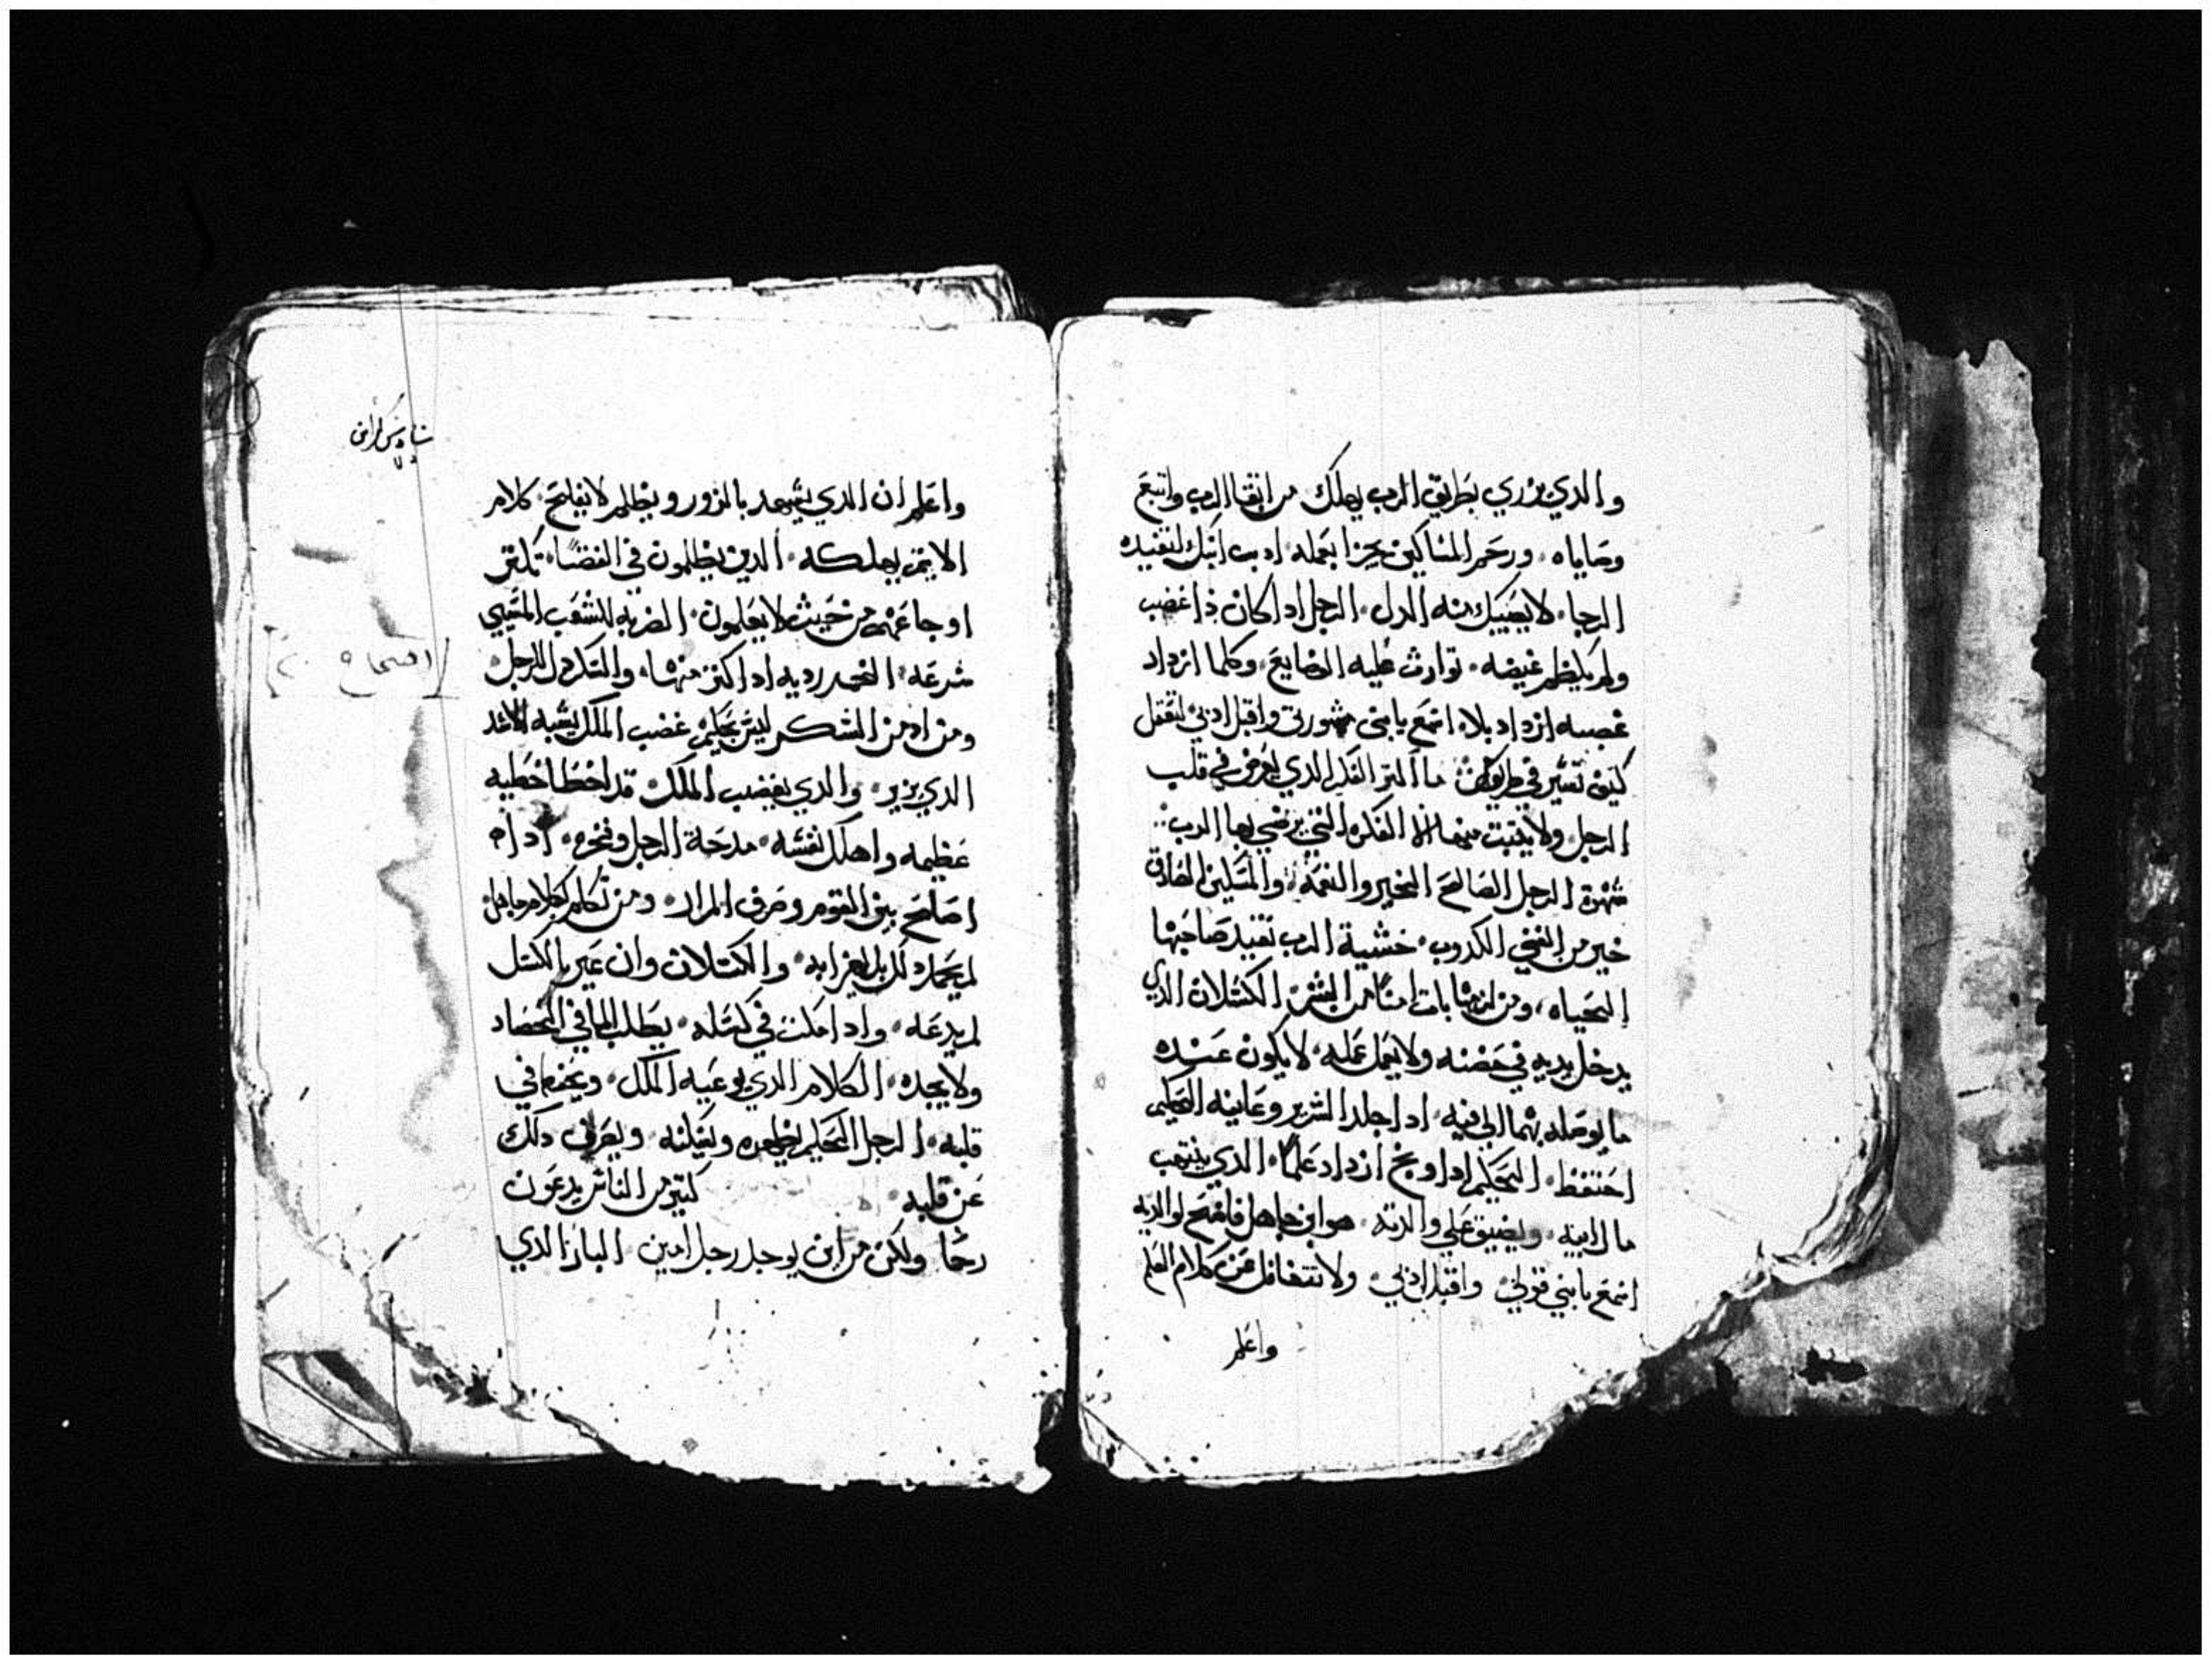 والدي يزري بطريق الرب يهلك من اتقا الرب واتبع
وصاياه ورحم المساكين يجزا بعمله ادب ابنك لتفيده
الرجا لا يصيبك منه الدل الرجل ادا كان ذا غضب
ولم يكظم غيضه توارت عليه الوضايع وكلما ازداد
غضبه ازداد بلا اسمع يا بني مشورتي واقبل ادبي لتعقل
كيف تسير في طريقك ما اكتر الفكر الدي يعرض في قلب
الرجل ولا يتبت منها الا الفكره التي يرضي بها الرب
شهوة الرجل الصالح الخير والنعمة والمسكين الصادق
خير من الغني الكدوب خشية الرب تفيد صاحبها
الحياه ومن لزمها بات امنا من الشر الكسلان الدي
يدخل يديه في حضنه ولا يعمل عمله لا يكون عنده
ما يوصله بهما الي فيه ادا جلد الشرير وعاينه الحكيم
احتفظ الحكيم ادا وبخ ازداد علما الدي ينتهب
مال ابيه ويضيق علي والدته هو ابن جاهل
اسمع يا بني قولي واقبل ادبي ولا تتغافل عن كلام العلم
واعلم
واعلم ان الدي يشهد بالزور ويظلم لا يفلح كلام
الاتيم يهلكه الدين يظلمون في القضا تكتر
اوجاعهم من حيث لا يعلمون الضربه للشعب
شرعه الخمر رديه ادا اكتر منها والسكر دل للرجل
ومن ادمن السكر ليس بحكيم غضب الملك يشبه الاسد
الدي يزير والدي يغضب الملك قد اخطا خطيه
عظيمه واهلك نفسه مدحة الرجل وفخره ادا
اصلح بين القوم وصرف المرار ومن تكلم بكلام جاهل
لم يحمد والكسلان وان عير بالكسل
لم يدعه وادا مكت في كسله يطلب الما في الحصاد
ولا يجده الكلام الدي يوعيه الملك في
قلبه الرجل الحكيم يظهره ويعلنه ويعرف دلك
عن قلبه كتير من الناس يدعون
رحما ولكن من اين يوجد رجل امين البار الدي
اصحاح ٢٠